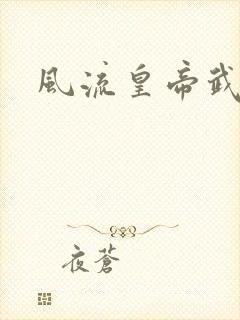 風流皇帝武
夜蒼